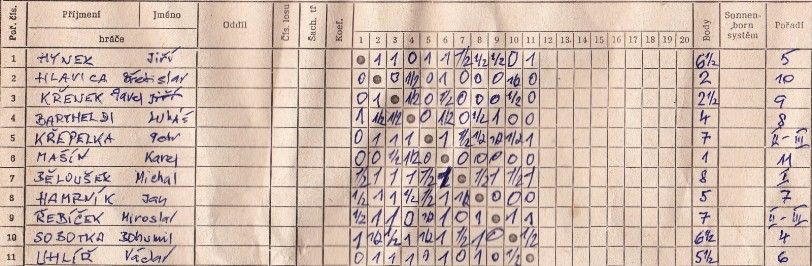 Poř. čís. Příjmení Jméno Oddíl Čís. losu Šach. tř. Koef. Body Sonnen-born systém Pořadí
hráče 1 2 3 4 5 6 7 8 9 10 11 12 13 14 15 16 17 18 19 20
1 HÝNEK Jiří 1 1 0 1 1 1/2 1/2 1/2 0 1 6 1/2 5
2 HLAVICA Břetislav 0 0 1/2 0 1 0 0 0 0 2 10
3 KŘENEK Pavel 0 1 1/2 0 1/2 0 0 0 1/2 0 2 1/2 9
4 BARTHELDI Lukáš 1 1/2 1/2 0 1/2 0 1/2 1 0 0 4 8
5 KŘEPELKA Petr 0 1 1 1 1 1/2 1/2 0 1/2 1 7 II - III
6 MAŠÍN Karel 0 0 1/2 1/2 0 0 0 0 0 0 1 11
7 BĚLOUŠEK Michal 1/2 1 1 1 1/2 1 1/2 1 1/2 1 8 I
8 HAMRNÍK Jan 1/2 1 1 1/2 1/2 1 1/2 0 0 0 5 7
9 ŘEBÍČEK Miroslav 1/2 1 1 0 1 0 1 1 1 7 II - III
10 SOBOTKA Bohumil 1 1/2 1/2 1 1/2 1 1/2 1 0 1/2 6 1/2 4
11 UHLÍŘ Václav 0 1 1 1 0 1 0 1 0 1/2 5 1/2 6